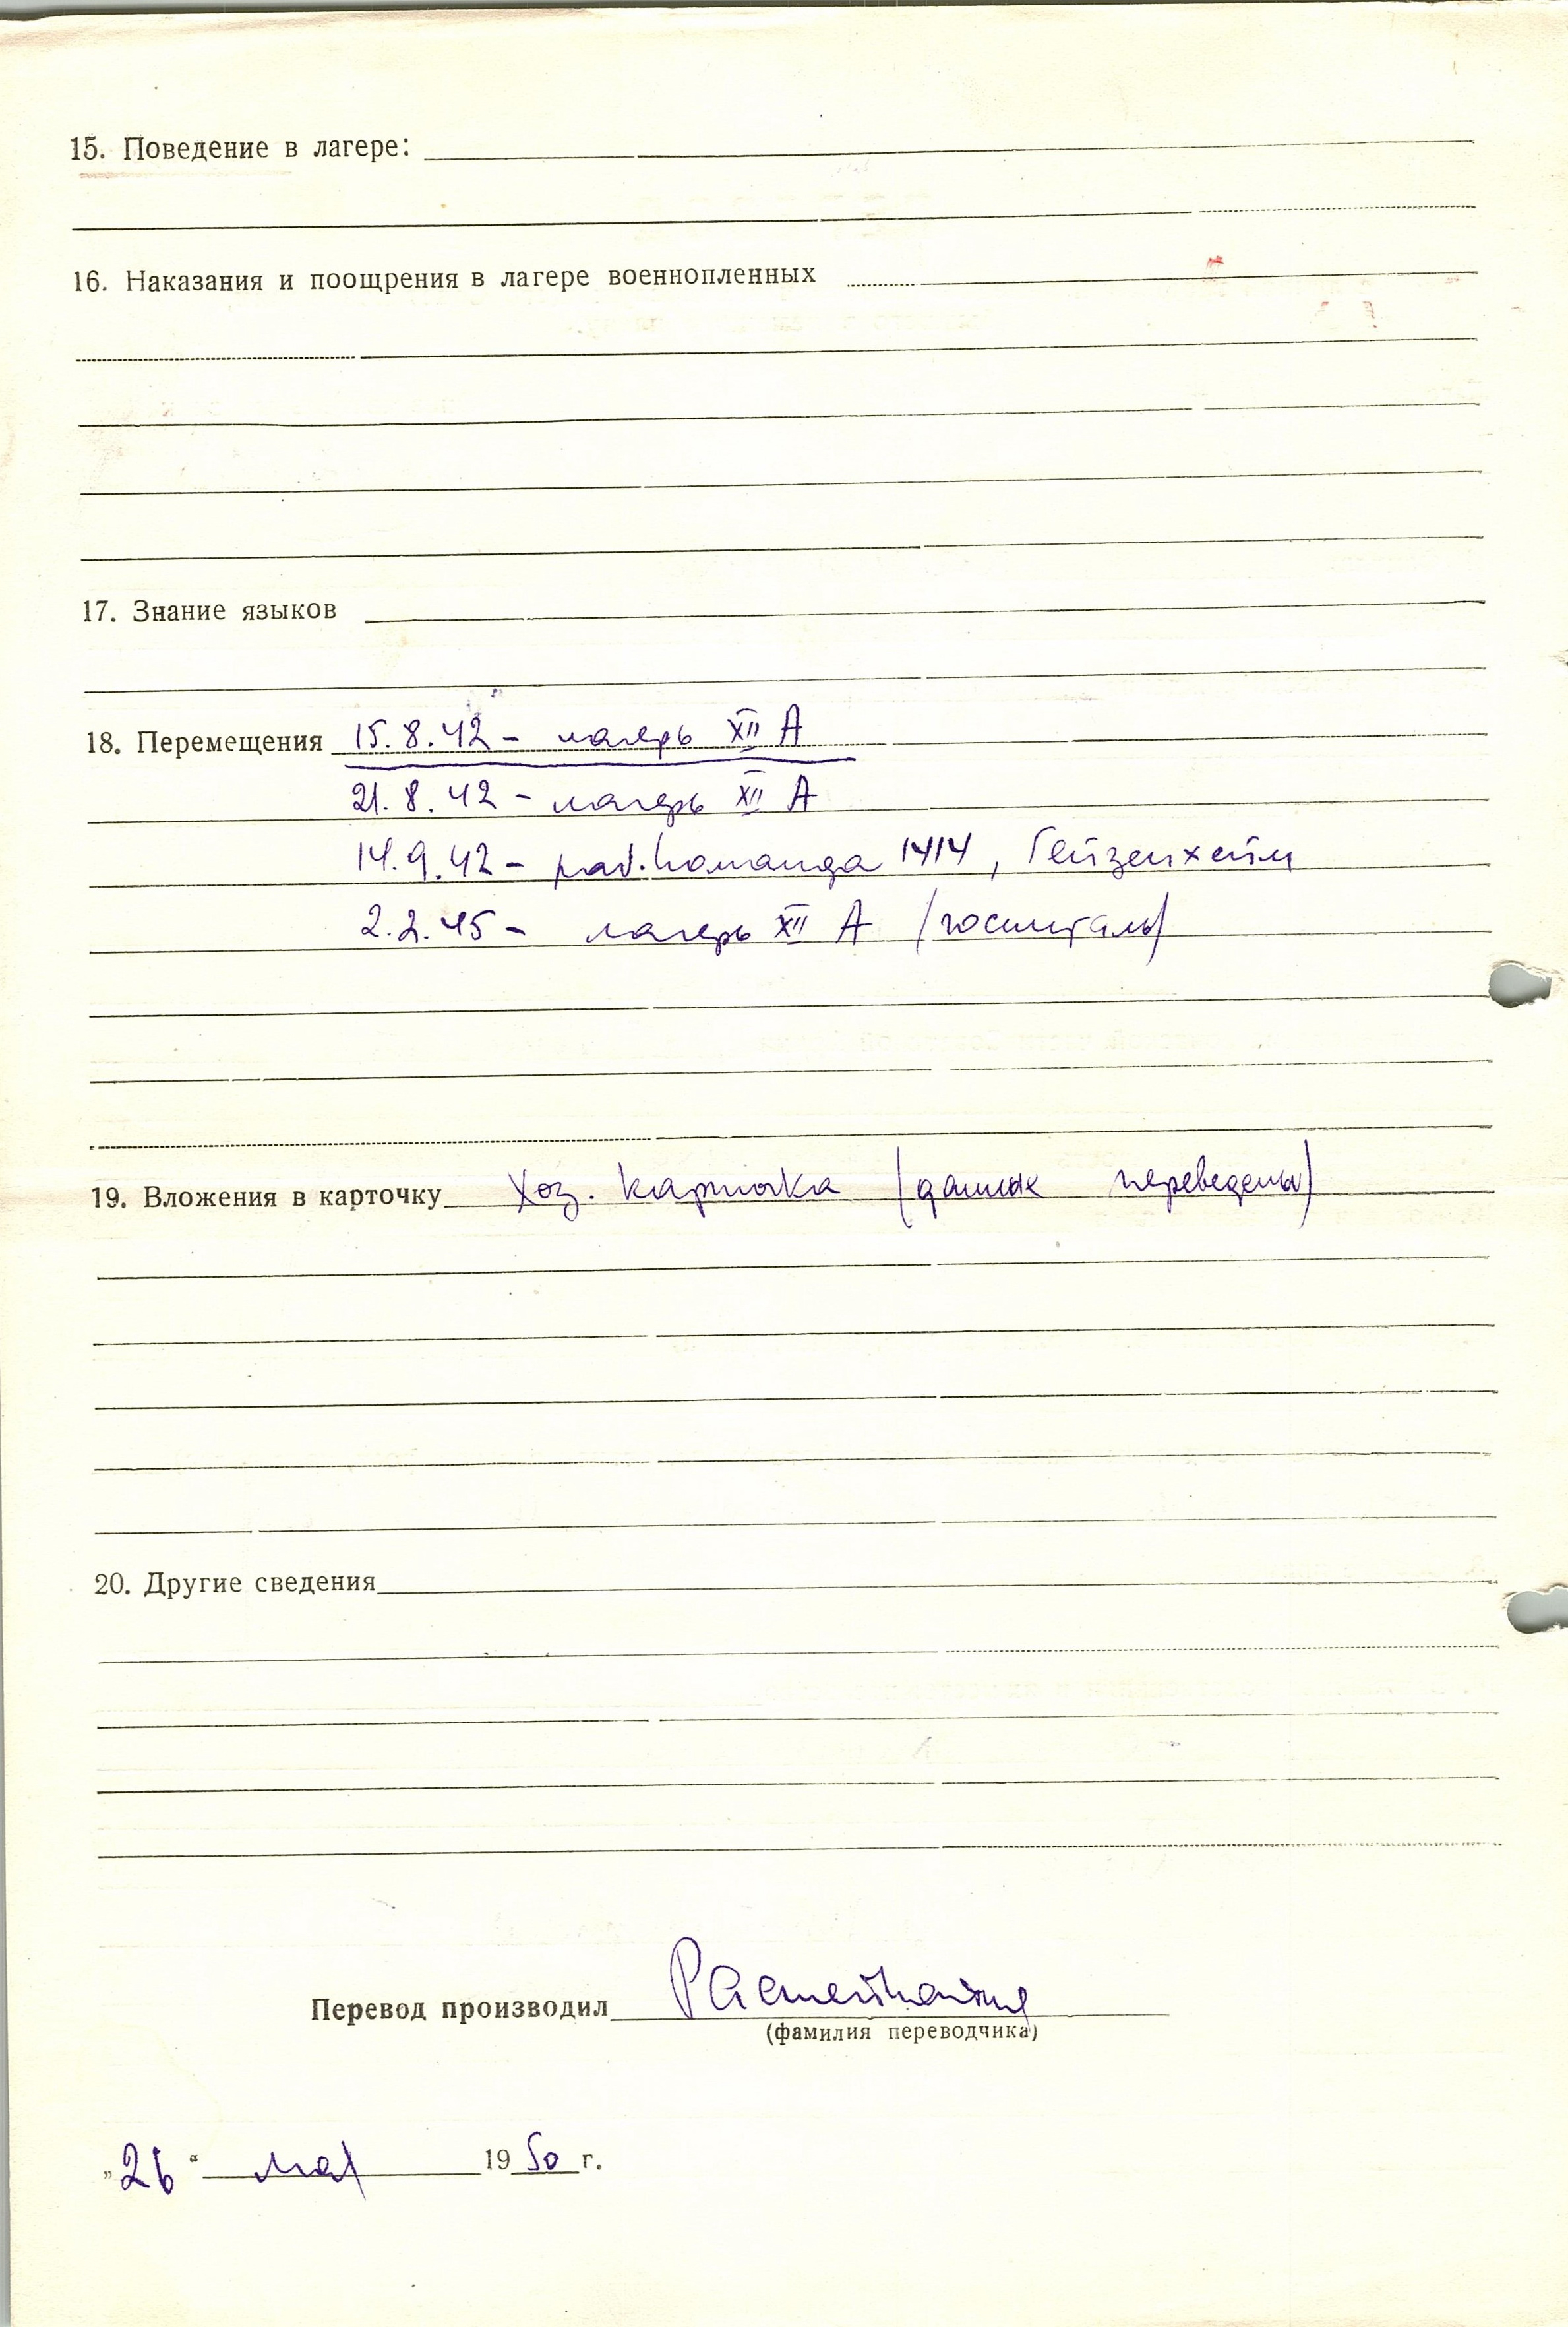 15. Поведение в лагере:
16. Наказания и поощрения в лагере военнопленных
17. Знание языков
18. Перемещения 15.8.42 - лагерь XII А
21.8.42 - лагерь XII А
14.9.42 - раб. команда 1414, Гейзенхейм
2.2.45 - лагерь XII А (госпиталь)
19. Вложения в карточку Хоз. карточка (данные переведены)
20. Другие сведения
Перевод производил
(фамилия переводчика)
„26“ мая 1950 г.